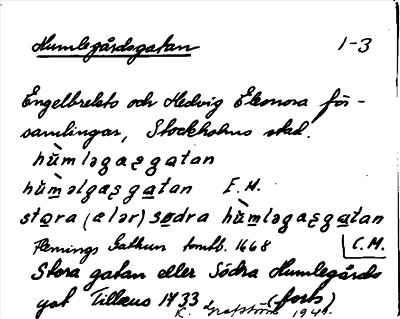 Humlegårdsgatan 1-3
Engelbrekts och Hedvig Eleonora för-
samlingar, Stockholms stad.
hùmləgaʂgatan
hùməlgaʂgatan E.H.
stora (ələr) sødra hùmləgaʂgatan
Flemings tomtb. 1668 C.M.
Stora gatan eller Södra Humlegårds
gat Tillæus 1733 (forts)
K. Grafström 194